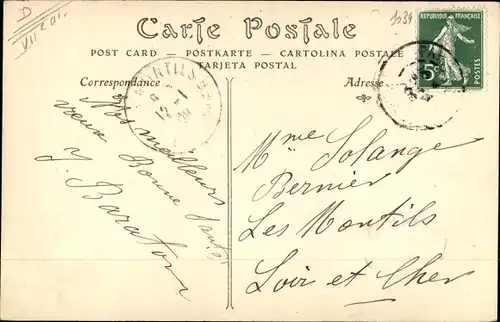 D
VII 201.
1039
Carte Postale
POST CARD — POSTKARTE — CARTOLINA POSTALE
TARJETA POSTAL
Correspondance
Adresse
REPUBLIQUE FRANÇAISE
5
MONTILS
Nos meilleurs
vœux Bonne Santé
J. Baraton
Mme Solange
Bernier
Les Montils
Loir et Cher